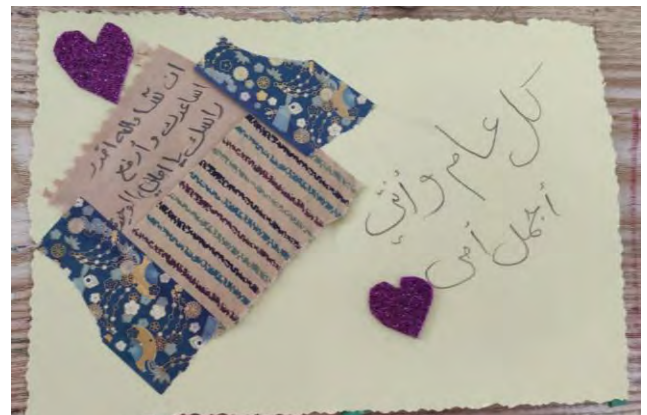 كل عام وأنتي
أجمل أمي
ان شاء الله اقدر
اساعدك وأرفع
راسك يا